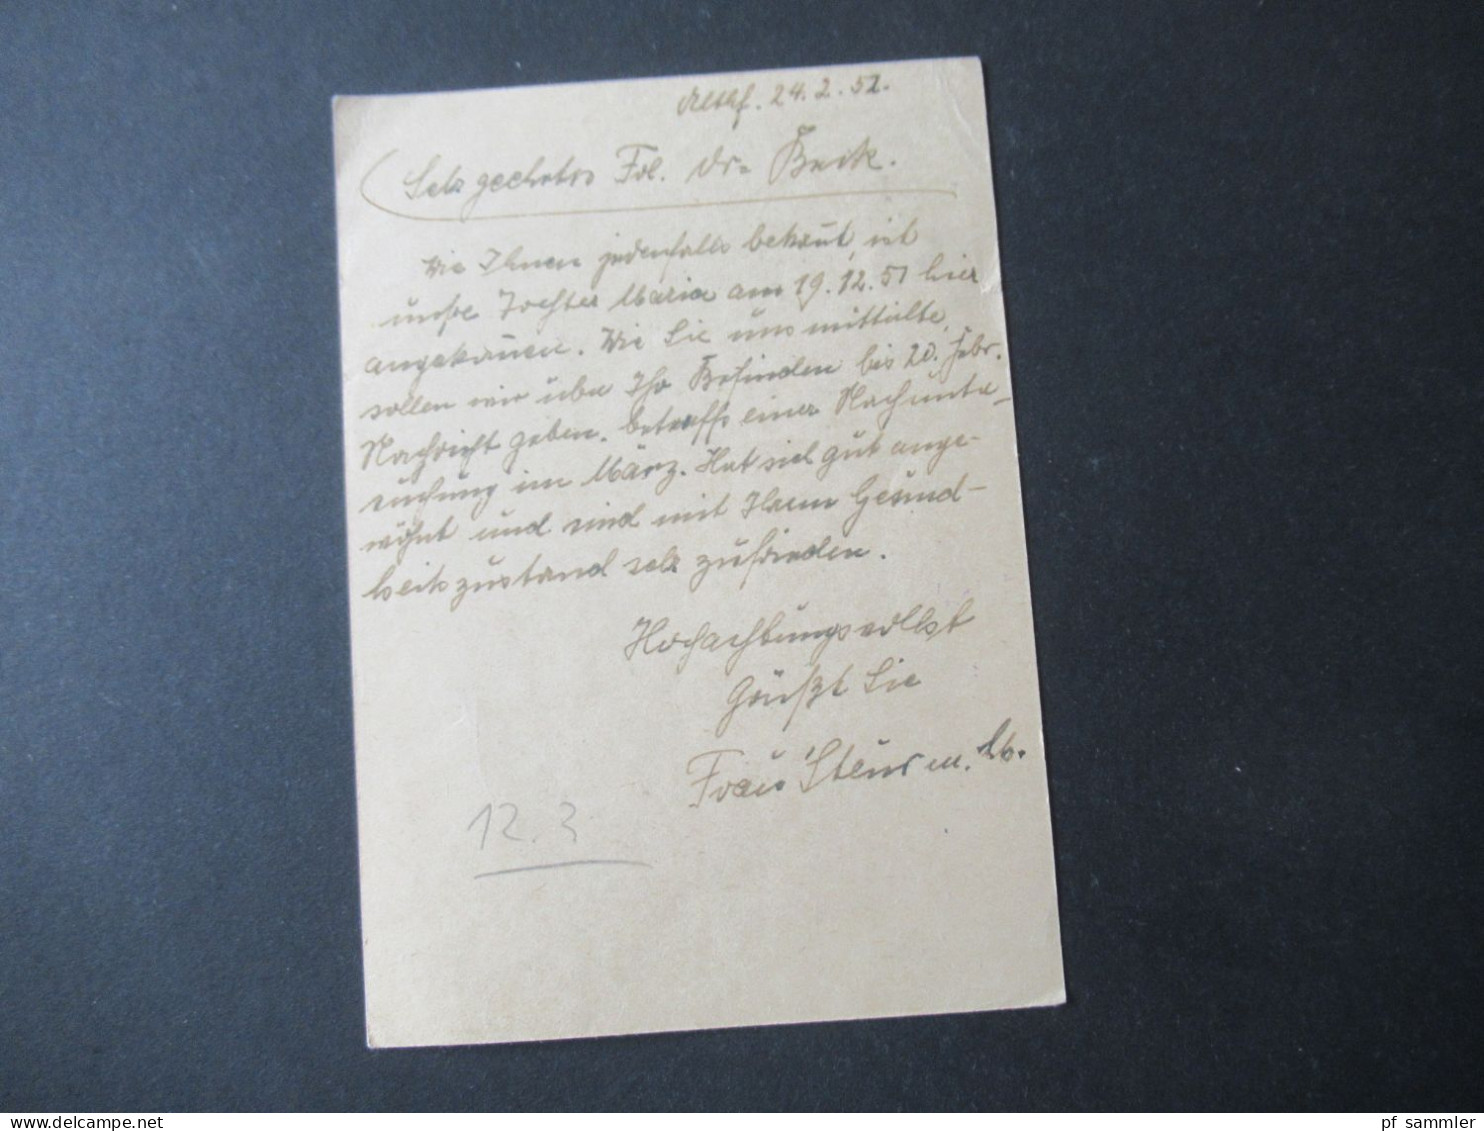 24.2.52.
Sehr geehrtes Frl. Dr. Beck.
Wie Ihnen jedenfalls bekannt, ist
unsre Tochter Maria am 19.12.51 hier
angekommen. Wie Sie uns mitteilte,
sollen wir über Ihr Befinden bis 20. Febr.
Nachricht geben. betreffs einer Nachunte-
suchung im März. Hat sich gut ange-
wöhnt und sind mit Ihrem Gesund-
heitszustand sehr zufrieden.
Hochachtungsvollst
Grüßt Sie
Frau Sturm.
12.3
pf_sammler
www.delcampe.net